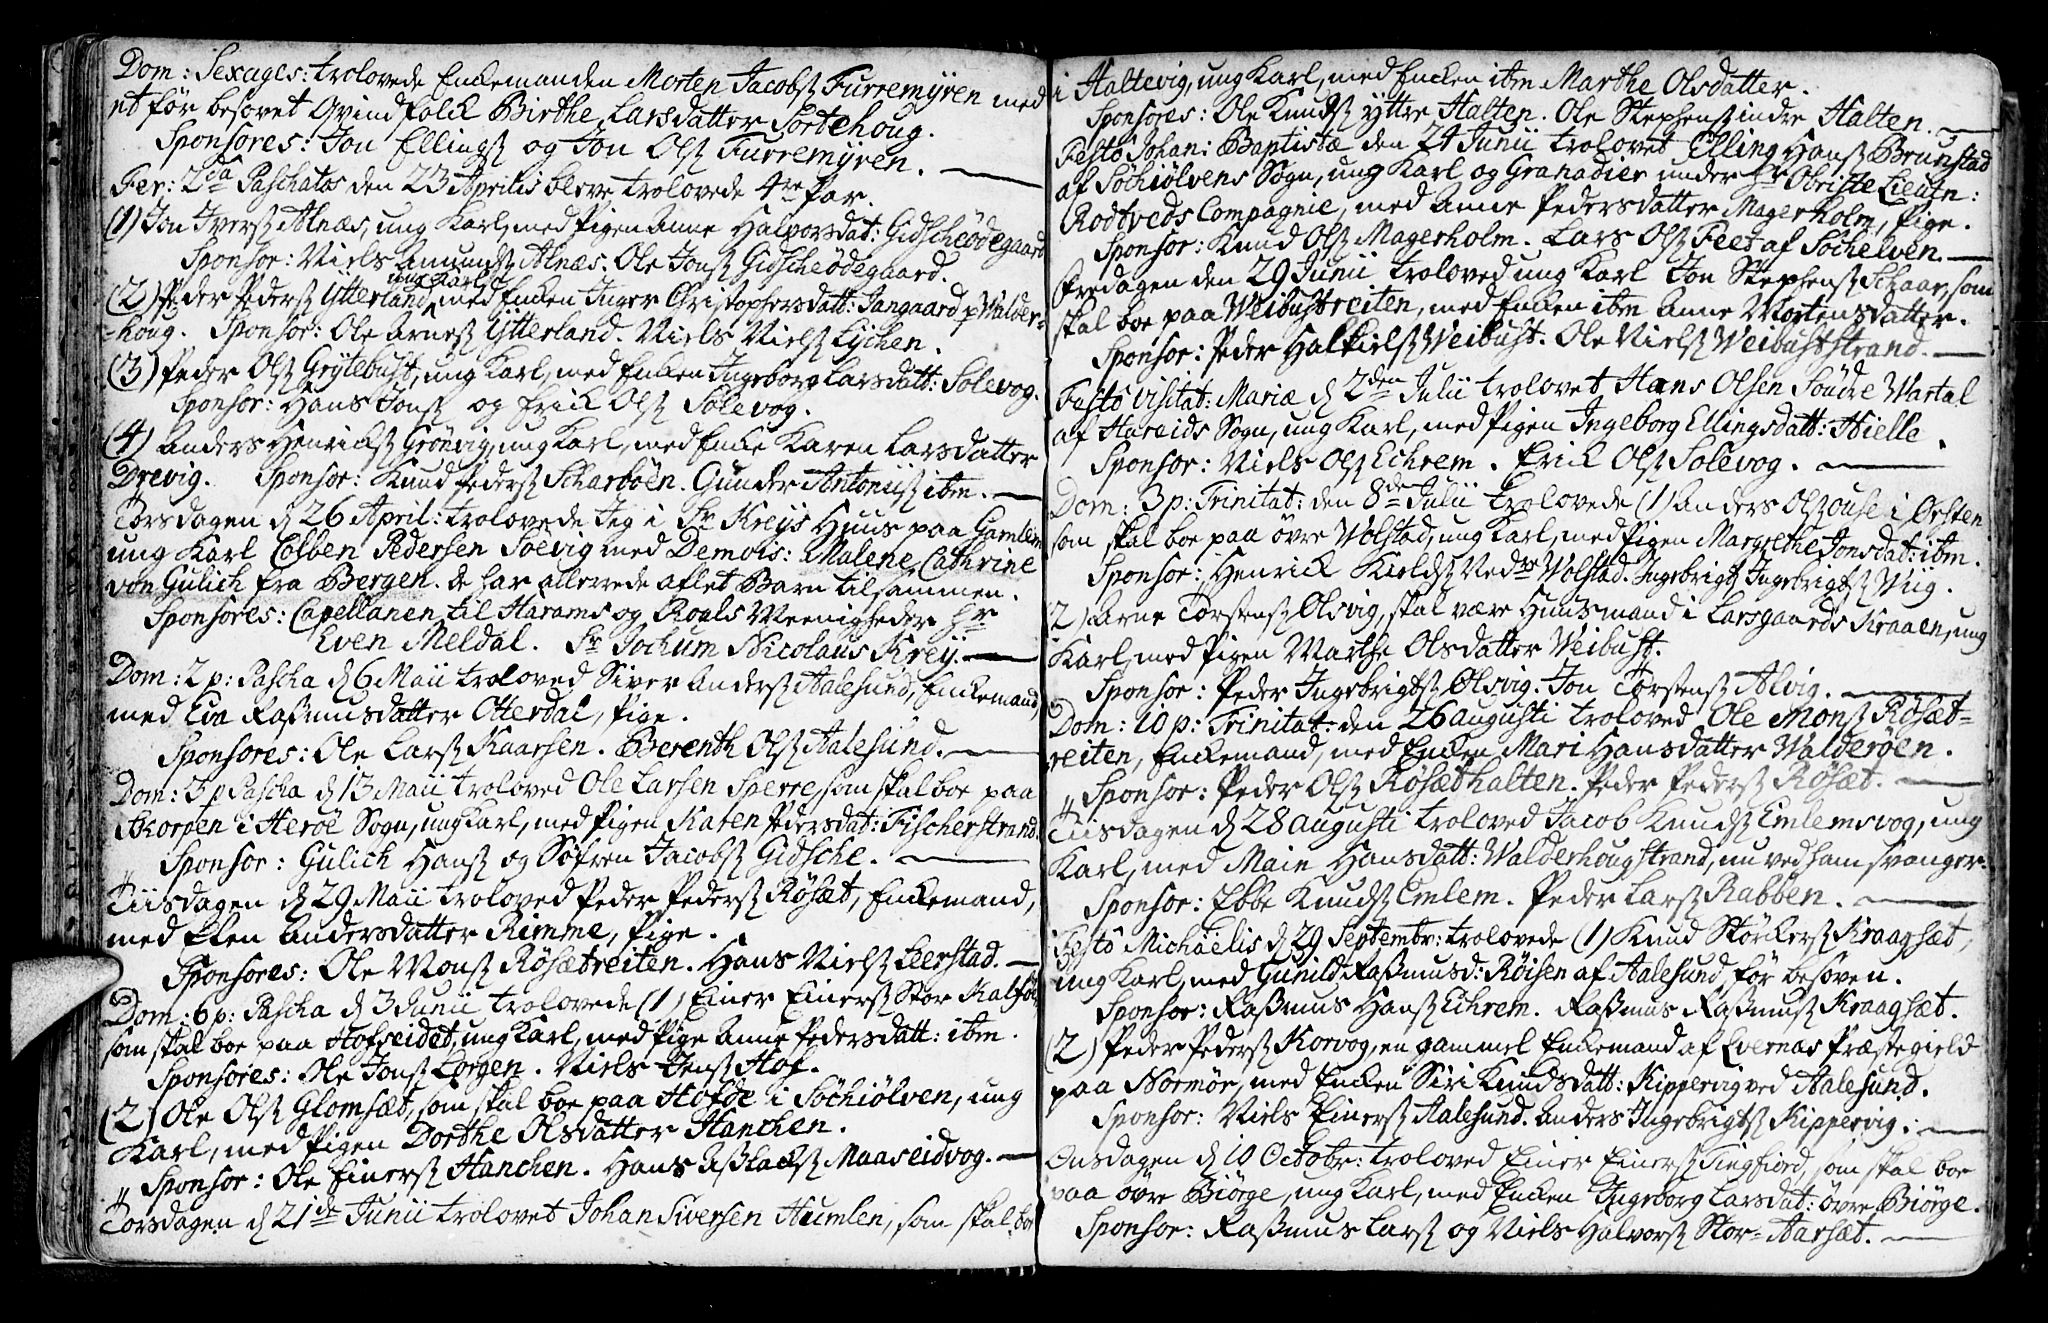 Dom: Sexages: trolovede Enkemanden Morten Jacobsz Furremyren med
et før besovet Qvindfolck Birthe Larsdatter Sortehoug.
Sponsores: Jon Ellingsz og Jon Olsz Furremyren.
Fer: 2da Paschatos den 23 Aprilis bleve trolovede 4re Par.
(1) Jon Iversz Alnæs, ung Karl, med Pigen Anne Halvorsdat: Gidscheødegaard
Sponsor: Niels Amundsz Alnæs. Ole Jonsz Gidscheødegaard.
ung Karl
(2) Peder Pedersz Ytterland, med Encken Inger Christophersdatt: Sangaard p Walder-
-houg. Sponsor: Ole Arnesz Ytterland. Niels Nielsz Lychen.
(3) Peder Olsz Grytebust, ung Karl, med Encken Ingeborg Larsdatt: Solevog.
Sponsor: Hans Jonsz og Erick Olsz Solevog.
(4) Anders Henricksz Grønvig, ung Karl, med Encke Karen Larsdatter
Drevig. Sponsor: Knud Pedersz Scharbøen. Gunder Antoniisz ibm.
Torsdagen d 26 April: trolovede Jeg i Sr Kreys Huus paa Gamlem
ung Karl Colben Pedersen Soevig med Demois: Malene Cathrine
von Gülich fra Bergen. de har allerede aflet Barn tilsammen.
Sponsores: Capellanen til Harams og Roals Meenigheder Hr
Even Meldal. Sr Jochum Nicolaus Kreÿ.
Dom: 2 p: Pascha d 6 Maii troloved Siver Andersz Aalesund, Enkemand,
med Eva Rasmusdatter Otterdal, Pige.
Sponsores: Ole Larsz Kaarsen. Berenth Olsz Aalesund.
Dom: 3 p Pascha d 13 Maii troloved Ole Larsen Sperre, som skal boe paa
Skorpen i Herøe Sogn, ung Karl, med Pigen Karen Pedersdat: Fischerstrand.
Sponsor: Gülich Hansz og Søfren Jacobsz Gidsche.
Tiisdagen d 29 Maii troloved Peder Pedersz Røsæt, Enckemand,
med Elen Andersdatter Rimme, Pige.
Sponsores: Ole Monsz Røsætreiten. Hans Nielsz Leerstad.
Dom: 6 p: Pascha d 3 Junii trolovede (1) Einer Einersz Stor Kalføe
som skal boe paa Hofseidet, ung Karl, med Pige Anne Pedersdatt: ibm.
Sponsores: Ole Jonsz Lorgen. Niels Jensz Hof.
(2) Ole Olsz Glomsæt, som skal boe paa Hofde i Søchiølven, ung
Karl, med Pigen Dorthe Olsdatter Hanchen.
Sponsor: Ole Einersz Hanchen. Hans Aslacksz Maaseidvog.
Torsdagen d 21de Junii trolovet Johan Siversen Humlen, som skal boe
i Haltevig, ung Karl, med Encken ibm Marthe Olsdatter.
Sponsores: Ole Knudsz yttre Halten. Ole Stephensz indre Halten.
Festo Johan: Baptistæ den 24 Junii trolovet Elling Hansz Brunstad
af Søchiølvens Sogn, ung Karl og Granadier under Hr Obriste Lieutn:
Rodtveds Compagnie, med Anne Pedersdatter Magerholm, Pige.
Sponsor: Knud Olsz Magerholm. Lars Olsz Feet af Søchelven.
Fredagen den 29 Junii troloved ung Karl Jon Stephensz Schaar, som
skal boe paa Weibustreiten, med Encken ibm Anne Mortensdatter.
Sponsor: Peder Halkielsz Weibust. Ole Nielsz Weibuststrand.
Festo Visitat: Mariæ d 2den Julii trolovet Hans Olsen Søndre Wartal
af Hareids Sogn, ung Karl, med Pigen Ingeborg Ellingsdatt: Hielle.
Sponsor: Niels Olsz Echrem. Erick Olsz Solevog.
Dom: 3 p: Trinitat: den 8de Julii trolovede (1) Anders Olsz Ouse i Ørsten
som skal boe paa øvre Wolstad, ung Karl, med Pigen Margrethe Jonsdat: ibm.
Sponsor: Henrick Kieldsz Nedre Wolstad. Ingebrigt Ingebrigtsz Viig.
2) Arne Torstensz Ølsvig, skal være Huusmand i Larsgaards Kraaen, ung
Karl, med Pigen Marthe Olsdatter Weibust.
Sponsor: Peder Ingebrigtsz Ølsvig. Jon Torstensz Alvig.
Dom: 10 p: Trinitat: den 26 Augusti troloved Ole Monsz Røsæt-
reiten, Enckemand, med Encken Mari Hansdatter Walderøen.
Sponsor: Peder Olsz Røsæthalten. Peder Pedersz Røsæt.
Tiisdagen d 28 Augusti troloved Jacob Knudsz Emlemsvog, ung
Karl, med Marn Hansdatt: Walderhougstrand, nu ved ham svanger.
Sponsor: Ebbe Knudsz Emlem. Peder Larsz Rabben.
Festo Michaëlis d 29 Septembr: trolovede (1) Knud Størckersz Kraagsæt,
ung Karl, med Gunild Rasmusd: Røisen af Aalesund, før besøven.
Sponsor: Rasmus Hansz Echrem. Rasmus Rasmusz Kraagsæt.
(2) Peder Pedersz Korvog, en gammel Enckemand af Evernæs Præstegield
paa Normør, med Encken Siri Knudsdatt: Kippervig ved Aalesund.
Sponsor: Niels Einersz Aalesund. Anders Ingebrigtsz Kippervig.
Onsdagen d 10 Octobr: troloved Einer Einersz Tingfiord, som skal boe
paa øvre Biørge, ung Karl, med Encken Ingeborg Larsdat: øvre Biørge.
Sponsor: Rasmus Larsz og Niels Halvorsz Stor-Aarsæt.